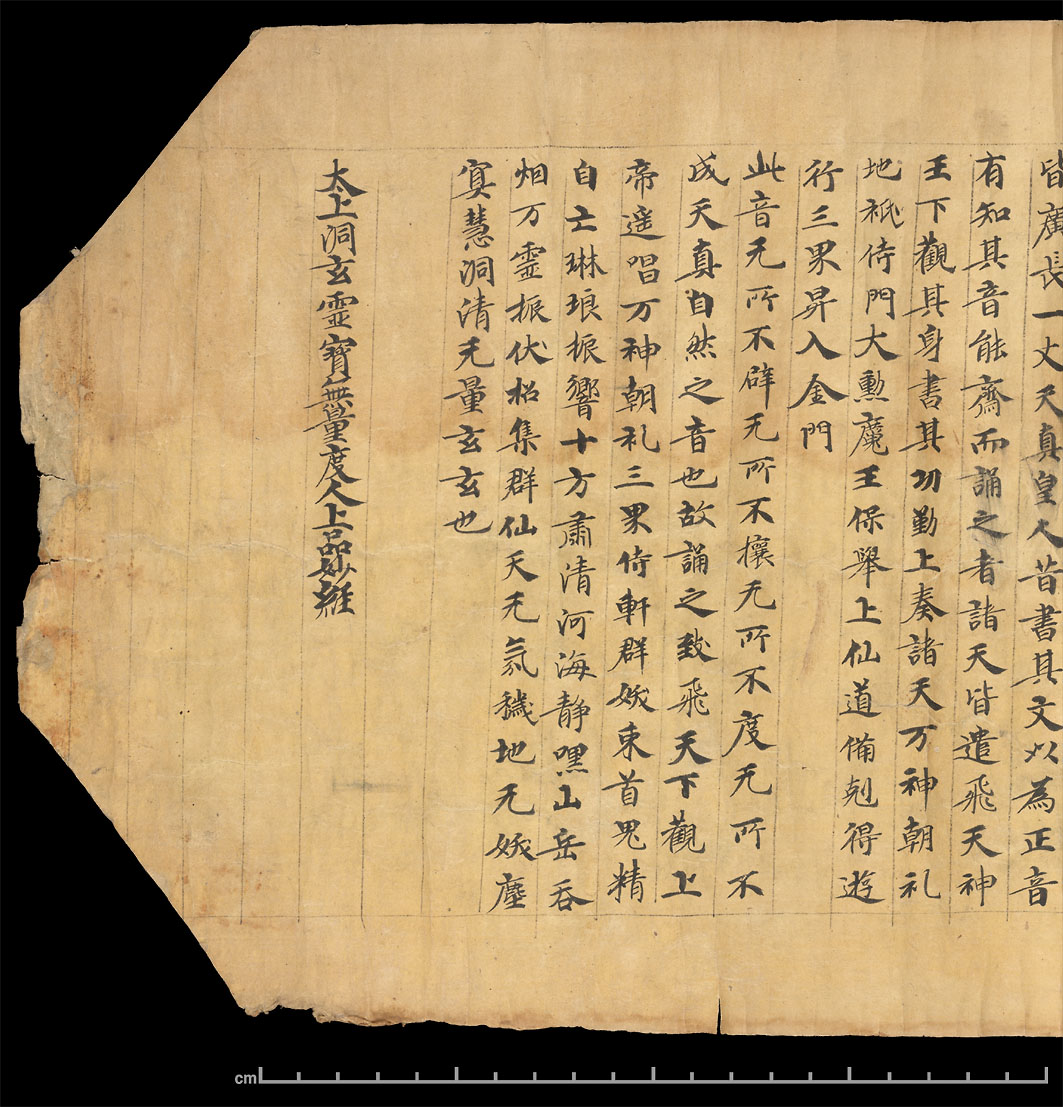 皆廣長一丈天真皇人昔書其文以為正音
有知其音能齋而誦之者諸天皆遣飛天神
王下觀其身書其功勤上奏諸天万神朝礼
地祇侍門大勳魔王保舉上仙道備剋得遊
行三界昇入金門
此音无所不辟无所不攘无所不度无所不
成天真自然之音也故誦之致飛天下觀上
帝遥唱万神朝礼三界侍軒群妖束首鬼精
自亡琳琅振響十方肅清河海静嘿山岳吞
烟万靈振伏招集群仙天无氛穢地无妖塵
冥慧洞清无量玄玄也
太上洞玄靈寶無量度人上品妙經
cm